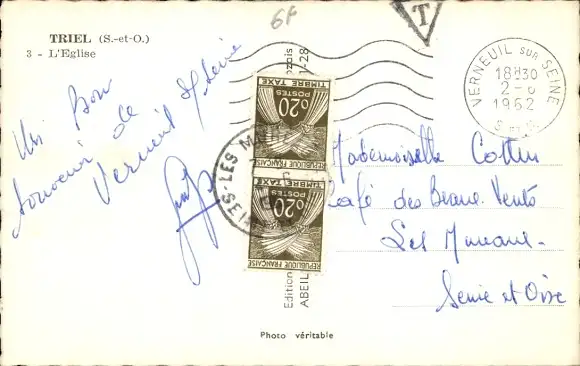 TRIEL (S.-et-O.)
3 - L'Eglise
6F
T
Un Bon
souvenir de
Verneuil s/ Seine
VERNEUIL SUR SEINE
18H30
2-6
1962
S. et O.
0,20
POSTES
TIMBRE TAXE
RÉPUBLIQUE FRANÇAISE
0,20
POSTES
TIMBRE TAXE
RÉPUBLIQUE FRANÇAISE
LES M
Mademoiselle Cottin
Café des Beaux Vents
Les Mureaux
Seine et Oise
Edition
ABEIL
1-28
Photo véritable